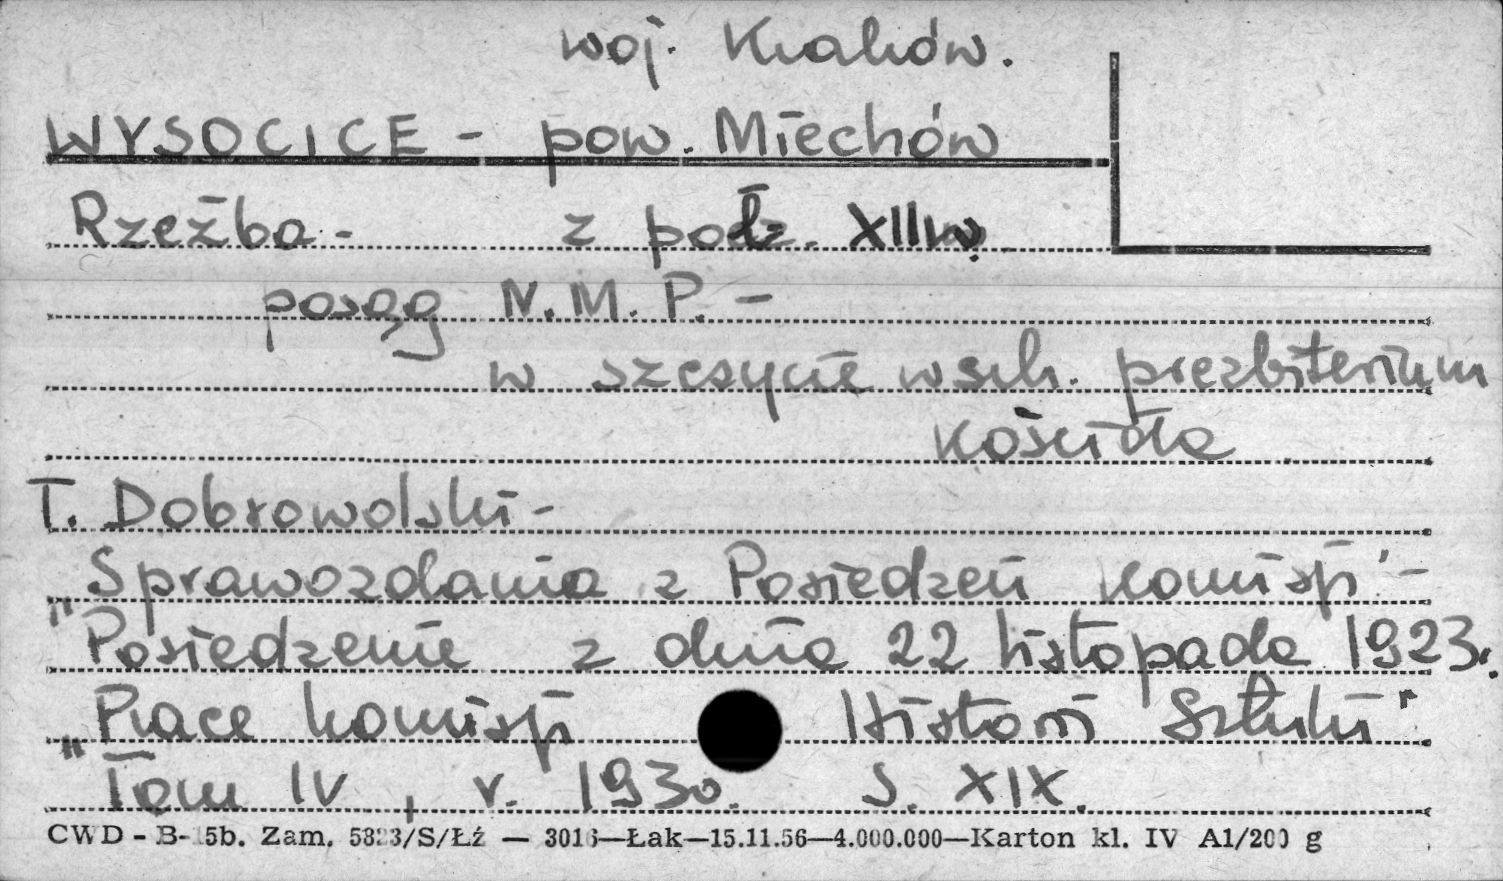 woj. Kraków.
WYSOCICE - pow. Miechów
Rzeźba - z poł. XII w.
posąg N. M. P. -
w szczycie wsch. prezbiterium
kościoła
T. Dobrowolski -
Sprawozdania z Posiedzeń Komisji -
"Posiedzenie z dnia 22 listopada 1923.
Prace Komisji Historii Sztuki"
"Tom IV, r. 1930. S. XIX.
CWD - B-15b. Zam. 5823/S/Łź — 3016—Łak—15.11.56—4.000.000—Karton kl. IV A1/200 g